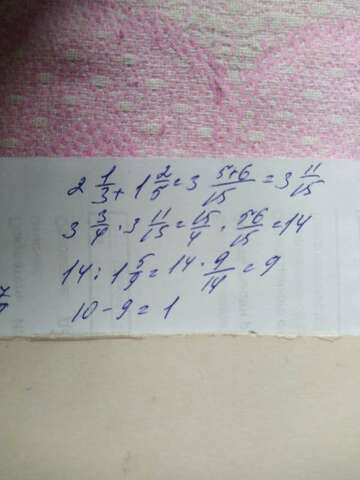 2 1/3 + 1 2/5 = 3 5+6/15 = 3 11/15
3 3/4 · 3 11/15 = 15/4 · 56/15 = 14
14 : 1 5/9 = 14 · 9/14 = 9
10 - 9 = 1